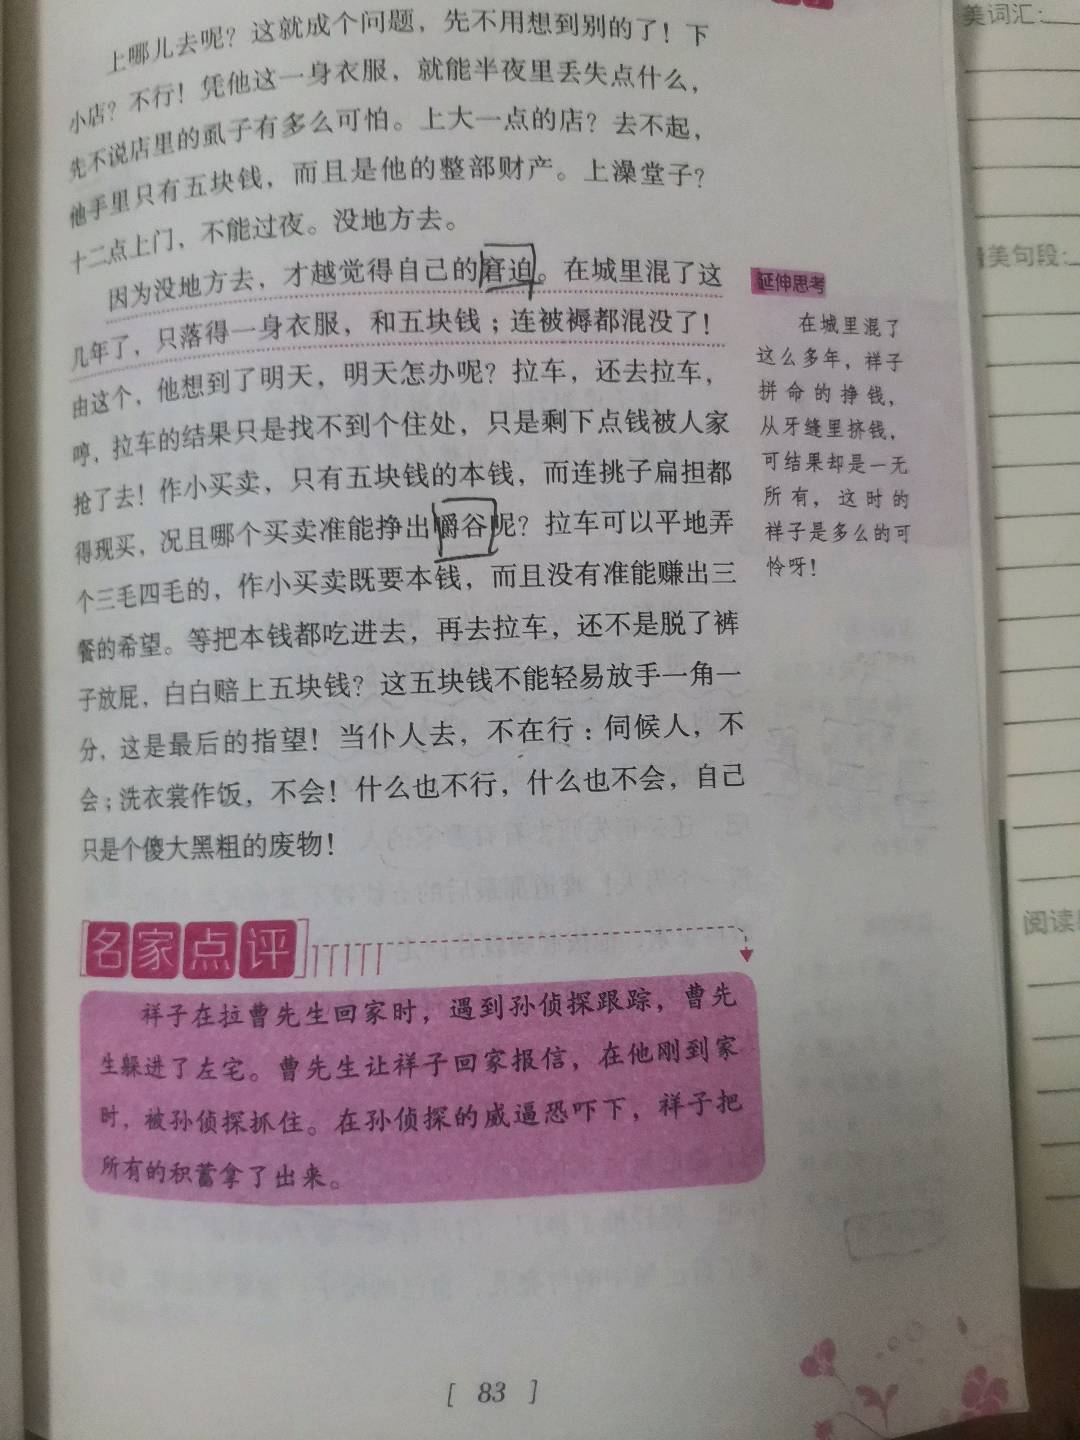 上哪儿去呢？这就成个问题，先不用想到别的了！下
小店？不行！凭他这一身衣服，就能半夜里丢失点什么，
先不说店里的虱子有多么可怕。上大一点的店？去不起，
他手里只有五块钱，而且是他的整部财产。上澡堂子？
十二点上门，不能过夜。没地方去。
因为没地方去，才越觉得自己的窘迫。在城里混了这
几年了，只落得一身衣服，和五块钱；连被褥都混没了！
由这个，他想到了明天，明天怎办呢？拉车，还去拉车，
哼，拉车的结果只是找不到个住处，只是剩下点钱被人家
抢了去！作小买卖，只有五块钱的本钱，而连挑子扁担都
得现买，况且哪个买卖准能挣出嚼谷呢？拉车可以平地弄
个三毛四毛的，作小买卖既要本钱，而且没有准能赚出三
餐的希望。等把本钱都吃进去，再去拉车，还不是脱了裤
子放屁，白白赔上五块钱？这五块钱不能轻易放手一角一
分，这是最后的指望！当仆人去，不在行：伺候人，不
会；洗衣裳作饭，不会！什么也不行，什么也不会，自己
只是个傻大黑粗的废物！
延伸思考
在城里混了
这么多年，祥子
拼命的挣钱，
从牙缝里挤钱，
可结果却是一无
所有，这时的
祥子是多么的可
怜呀！
名家点评
祥子在拉曹先生回家时，遇到孙侦探跟踪，曹先
生躲进了左宅。曹先生让祥子回家报信，在他刚到家
时，被孙侦探抓住。在孙侦探的威逼恐吓下，祥子把
所有的积蓄拿了出来。
[ 83 ]
美词汇：
美句段：
阅读